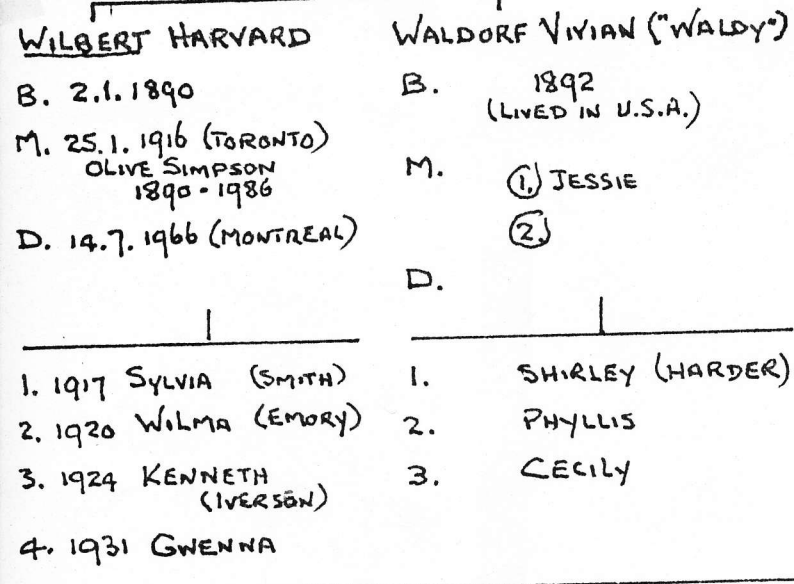 WILBERT HARVARD
B. 2.1.1890
M. 25.1.1916 (TORONTO)
OLIVE SIMPSON
1890-1986
D. 14.7.1966 (MONTREAL)
1. 1917 SYLVIA (SMITH)
2. 1920 WILMA (EMORY)
3. 1924 KENNETH
(IVERSON)
4. 1931 GWENNA
WALDORF VIVIAN ("WALDY")
B. 1892
(LIVED IN U.S.A.)
M. 1. JESSIE
2.
D.
1. SHIRLEY (HARDER)
2. PHYLLIS
3. CECILY